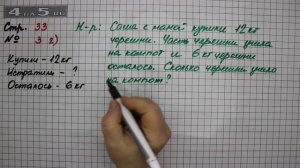 4 5
Стр. 33
№ 3 2)
Купили - 12 кг
Истратили - ?
Осталось - 6 кг
Н-р: Саша с мамой купили 12 кг
черешни. Часть черешни ушла
на компот и 6 кг черешни
осталось. Сколько черешни ушло
на компот?